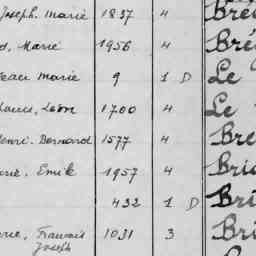 Joseph. Marie 1837 4 Bré
d, Marie 1956 4 Bré
Jean Marie 9 1 D Le
Louis, Léon 1700 4 Le
Henri. Bernard 1577 4 Bre
rie, Emile 1957 4 Bri
432 1 D Bri
rie, Francois 1031 3 Bri
Joseph